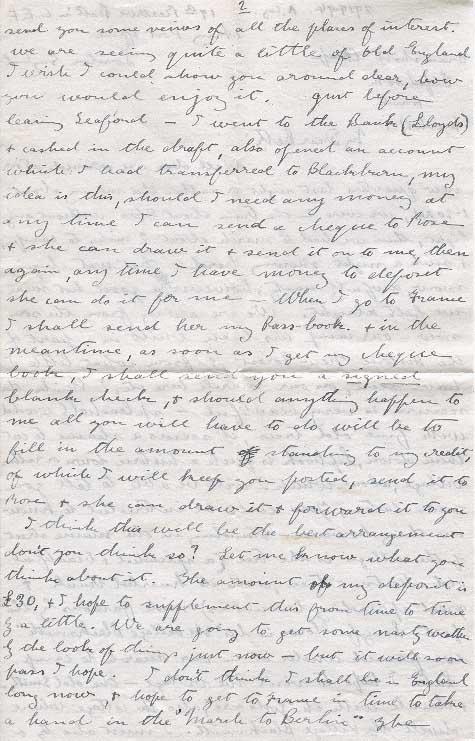 2
send you some veiws of all the places of interest.
we are seeing quite a little of Old England
I wish I could show you around dear, how
you would enjoy it. Just before
leaving Seaford – I went to the Bank (Lloyds)
+ cashed in the draft, also opened an account
which I had transferred to Blackburn, my
idea is this, should I need any money at
any time I can send a cheque to Rose
+ she can draw it + send it on to me, then
again, any time I have money to deposit
she can do it for me – When I go to France
I shall send her my Pass-book. + in the
meantime, as soon as I get my cheque
book, I shall send you a signed
blank check, + should anything happen to
me all you will have to do will be to
fill in the amount of standing to my credit,
of which I will keep you posted, send it to
Rose + she can draw it + forward it to you
I think this will be the best arrangement
don't you think so? Let me know what you
think about it. The amount of my deposit is
£30, + I hope to supplement this from time to time
by a little. We are going to get some nasty weather
by the look of things just now – but it will soon
pass I hope. I don't think I shall be in England
long now, + hope to get to France in time to take
a hand in the "March to Berlin"